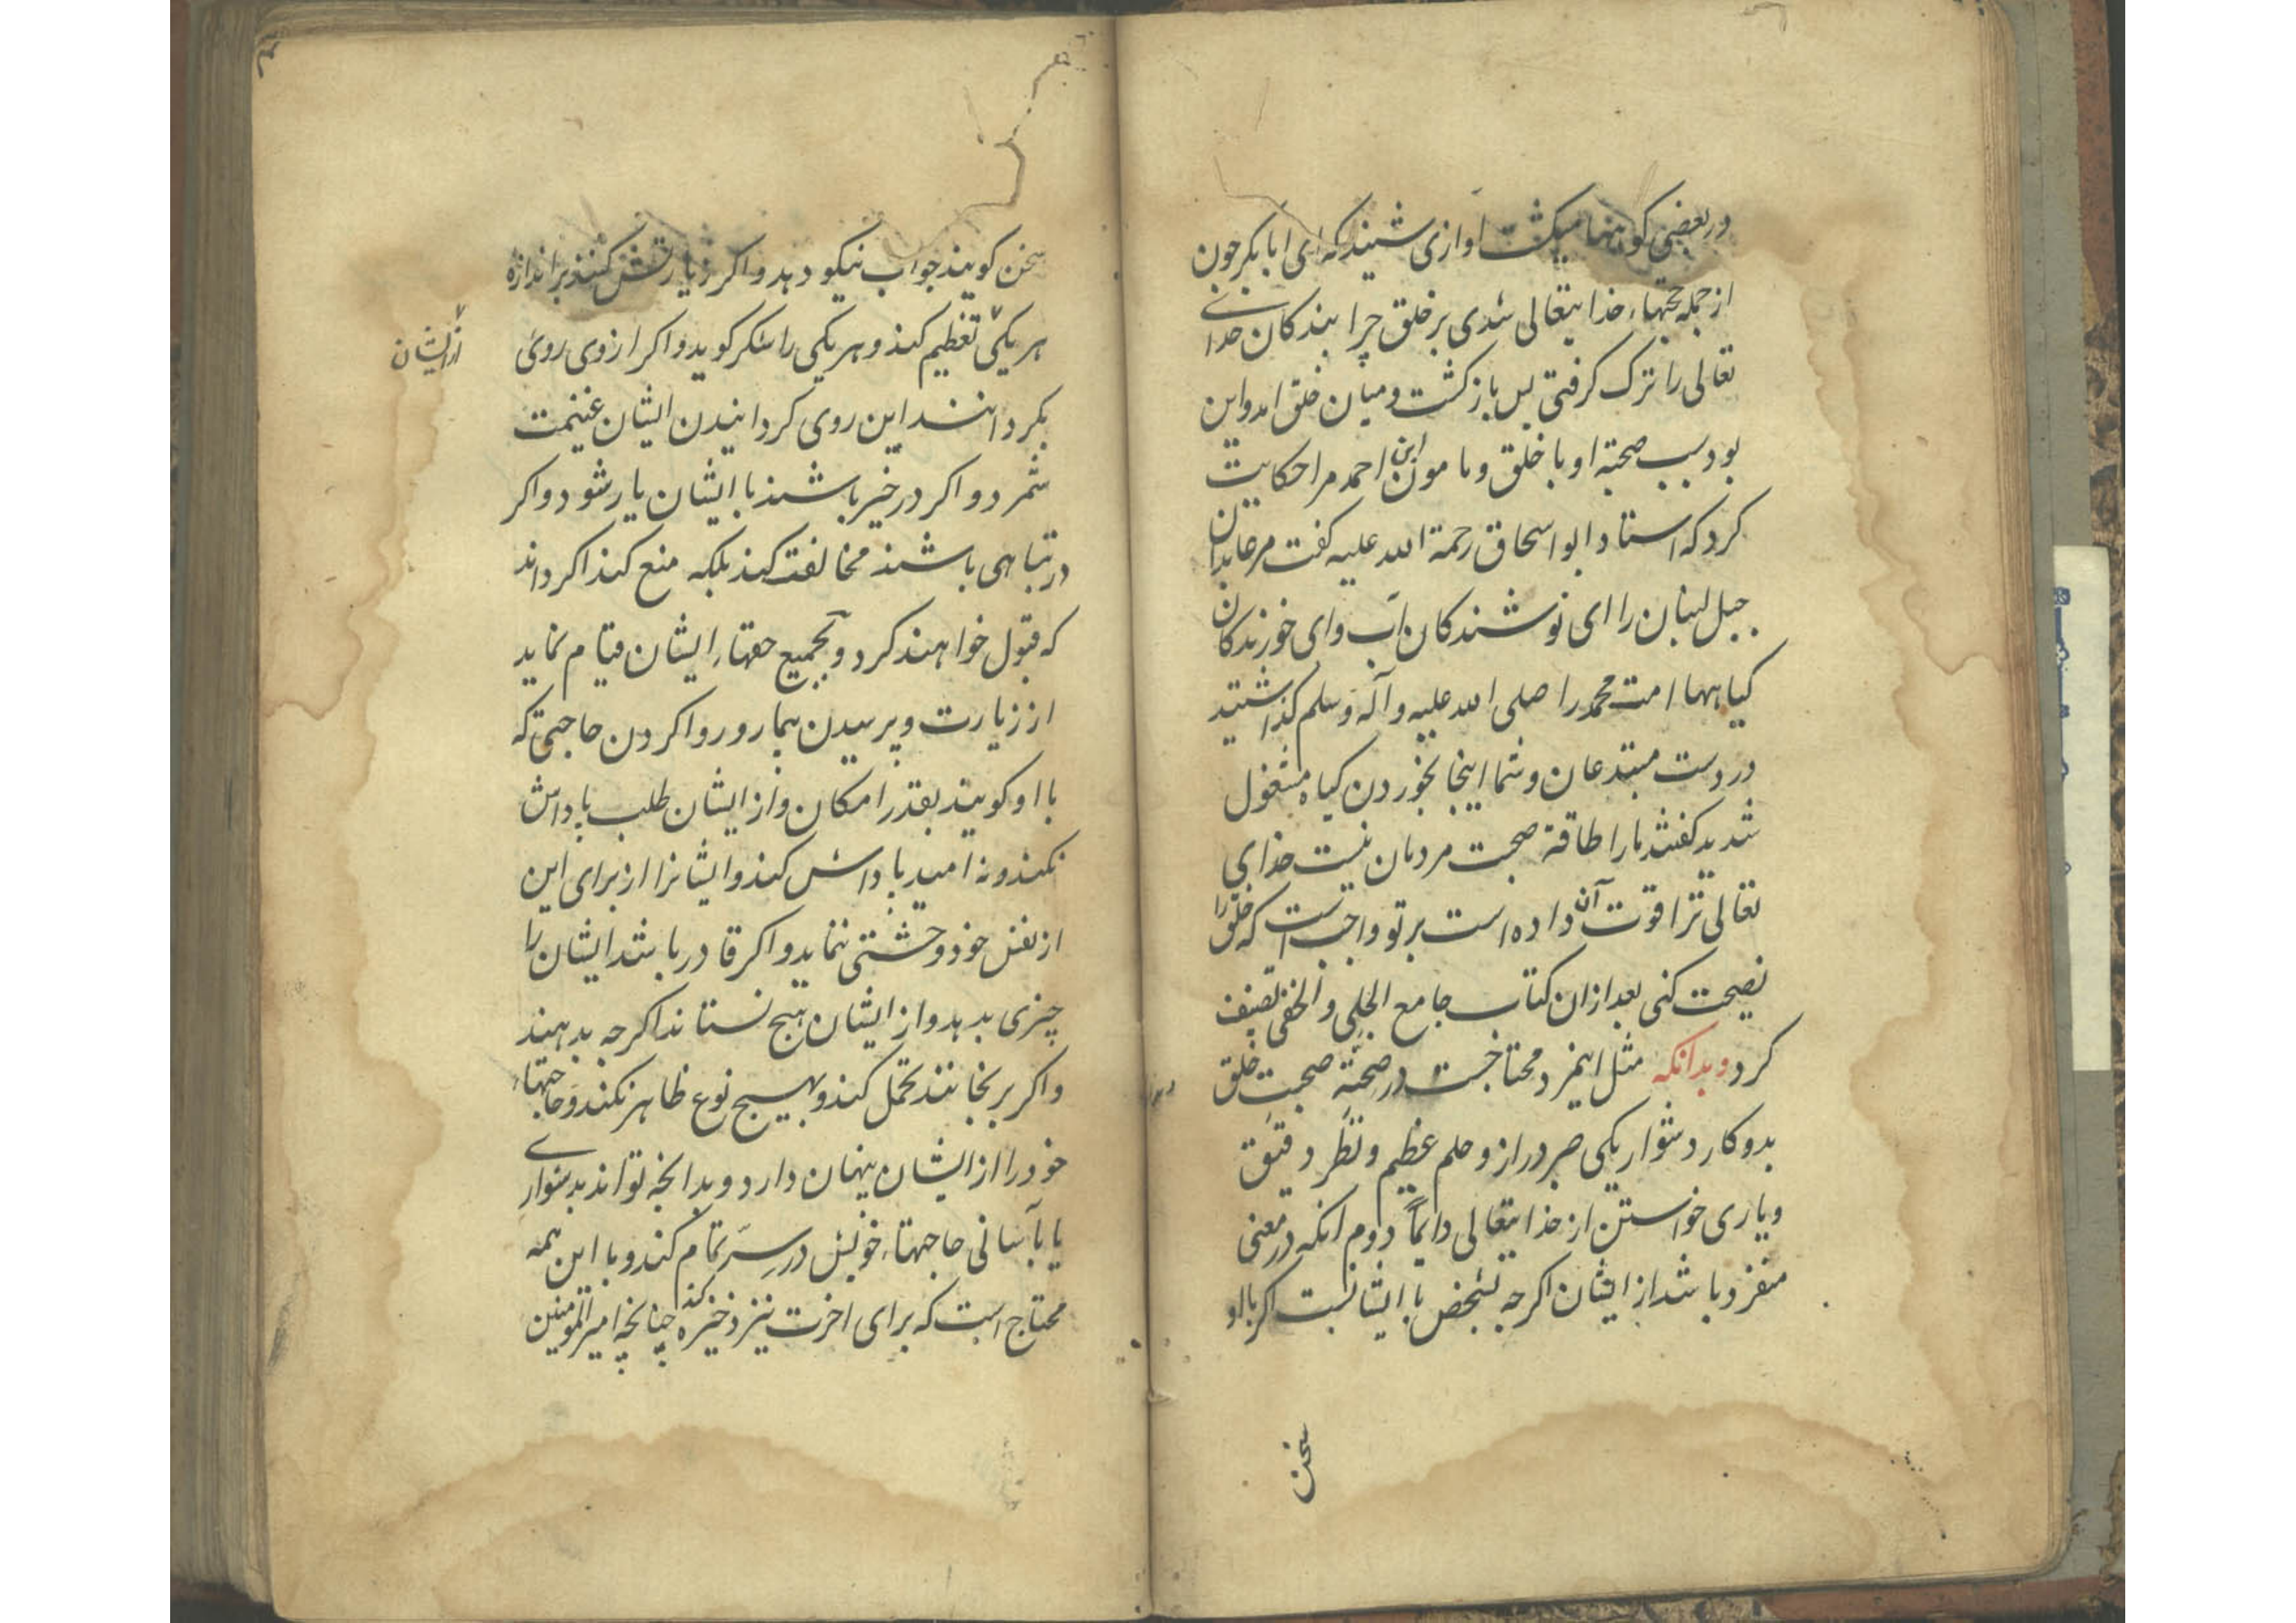 در بعضی کوهها میکشت اوازی شنید که ای ابا بکر چون
از جمله حجتهاء خدایتعالی شدی بر خلق چرا بندکان خدای
تعالی را ترک کرفتی پس بازکشت و میان خلق امد و این
بود سبب صحبة او با خلق و مامون ابن احمد مرا حکایت
کرد که استاد ابو اسحاق رحمة الله علیه کفت مر عابدان
جبل لبنان را ای نوشندکان آب و ای خورندکان
کیاهها امت محمد را صلی الله علیه و آله و سلم کذاشتید
در دست مبتدعان و شما اینجا بخوردن کیاه مشغول
شدید کفتند ما را طاقة صحبت مردمان نیست خدای
تعالی ترا قوت آن داده است بر تو واجب است که خلق را
نصیحت کنی بعد از ان کتاب جامع الجلی و الخفی تصنیف
کرد و بدانکه مثل اینمرد محتاجست در صحبة صحبت خلق
بدو کار دشوار یکی صبر دراز و حلم عظیم و نظر دقیق
و یاری خواستن از خدایتعالی دایماً دوم انکه در معنی
منفرد باشد از ایشان اکرچه بشخص با ایشانست اکر با او
سخن
سخن کویند جواب نیکو دهد و اکر زیارتش کنند بر اندازه
هر یکی تعظیم کند و هر یکی را شکر کوید و اکر از وی روی
از ایشان
بکردانند این روی کردانیدن ایشان غنیمت
شمرد و اکر در خیر باشند با ایشان یار شود و اکر
در تباهی باشند مخالفت کند بلکه منع کند اکر داند
که قبول خواهند کرد و بجمیع حقهاء ایشان قیام نماید
از زیارت و پرسیدن بیمار و روا کردن حاجتی که
با او کویند بقدر امکان و از ایشان طلب پاداش
نکند و نه امید پاداش کند و ایشانرا از برای این
از نفس خود وحشتی ننماید و اکر قادر باشد ایشان را
چیزی بدهد و از ایشان هیچ نستاند اکرچه بدهند
و اکر برنجانند تحمل کند و بهیچ نوع ظاهر نکند و حاجتهاء
خود را از ایشان پنهان دارد و بدانچه تواند بدشواری
یا بآسانی حاجتهاء خویش در سر تمام کند و با این همه
محتاج است که برای اخرت نیز ذخیره کند چنانچه امیر المومنین